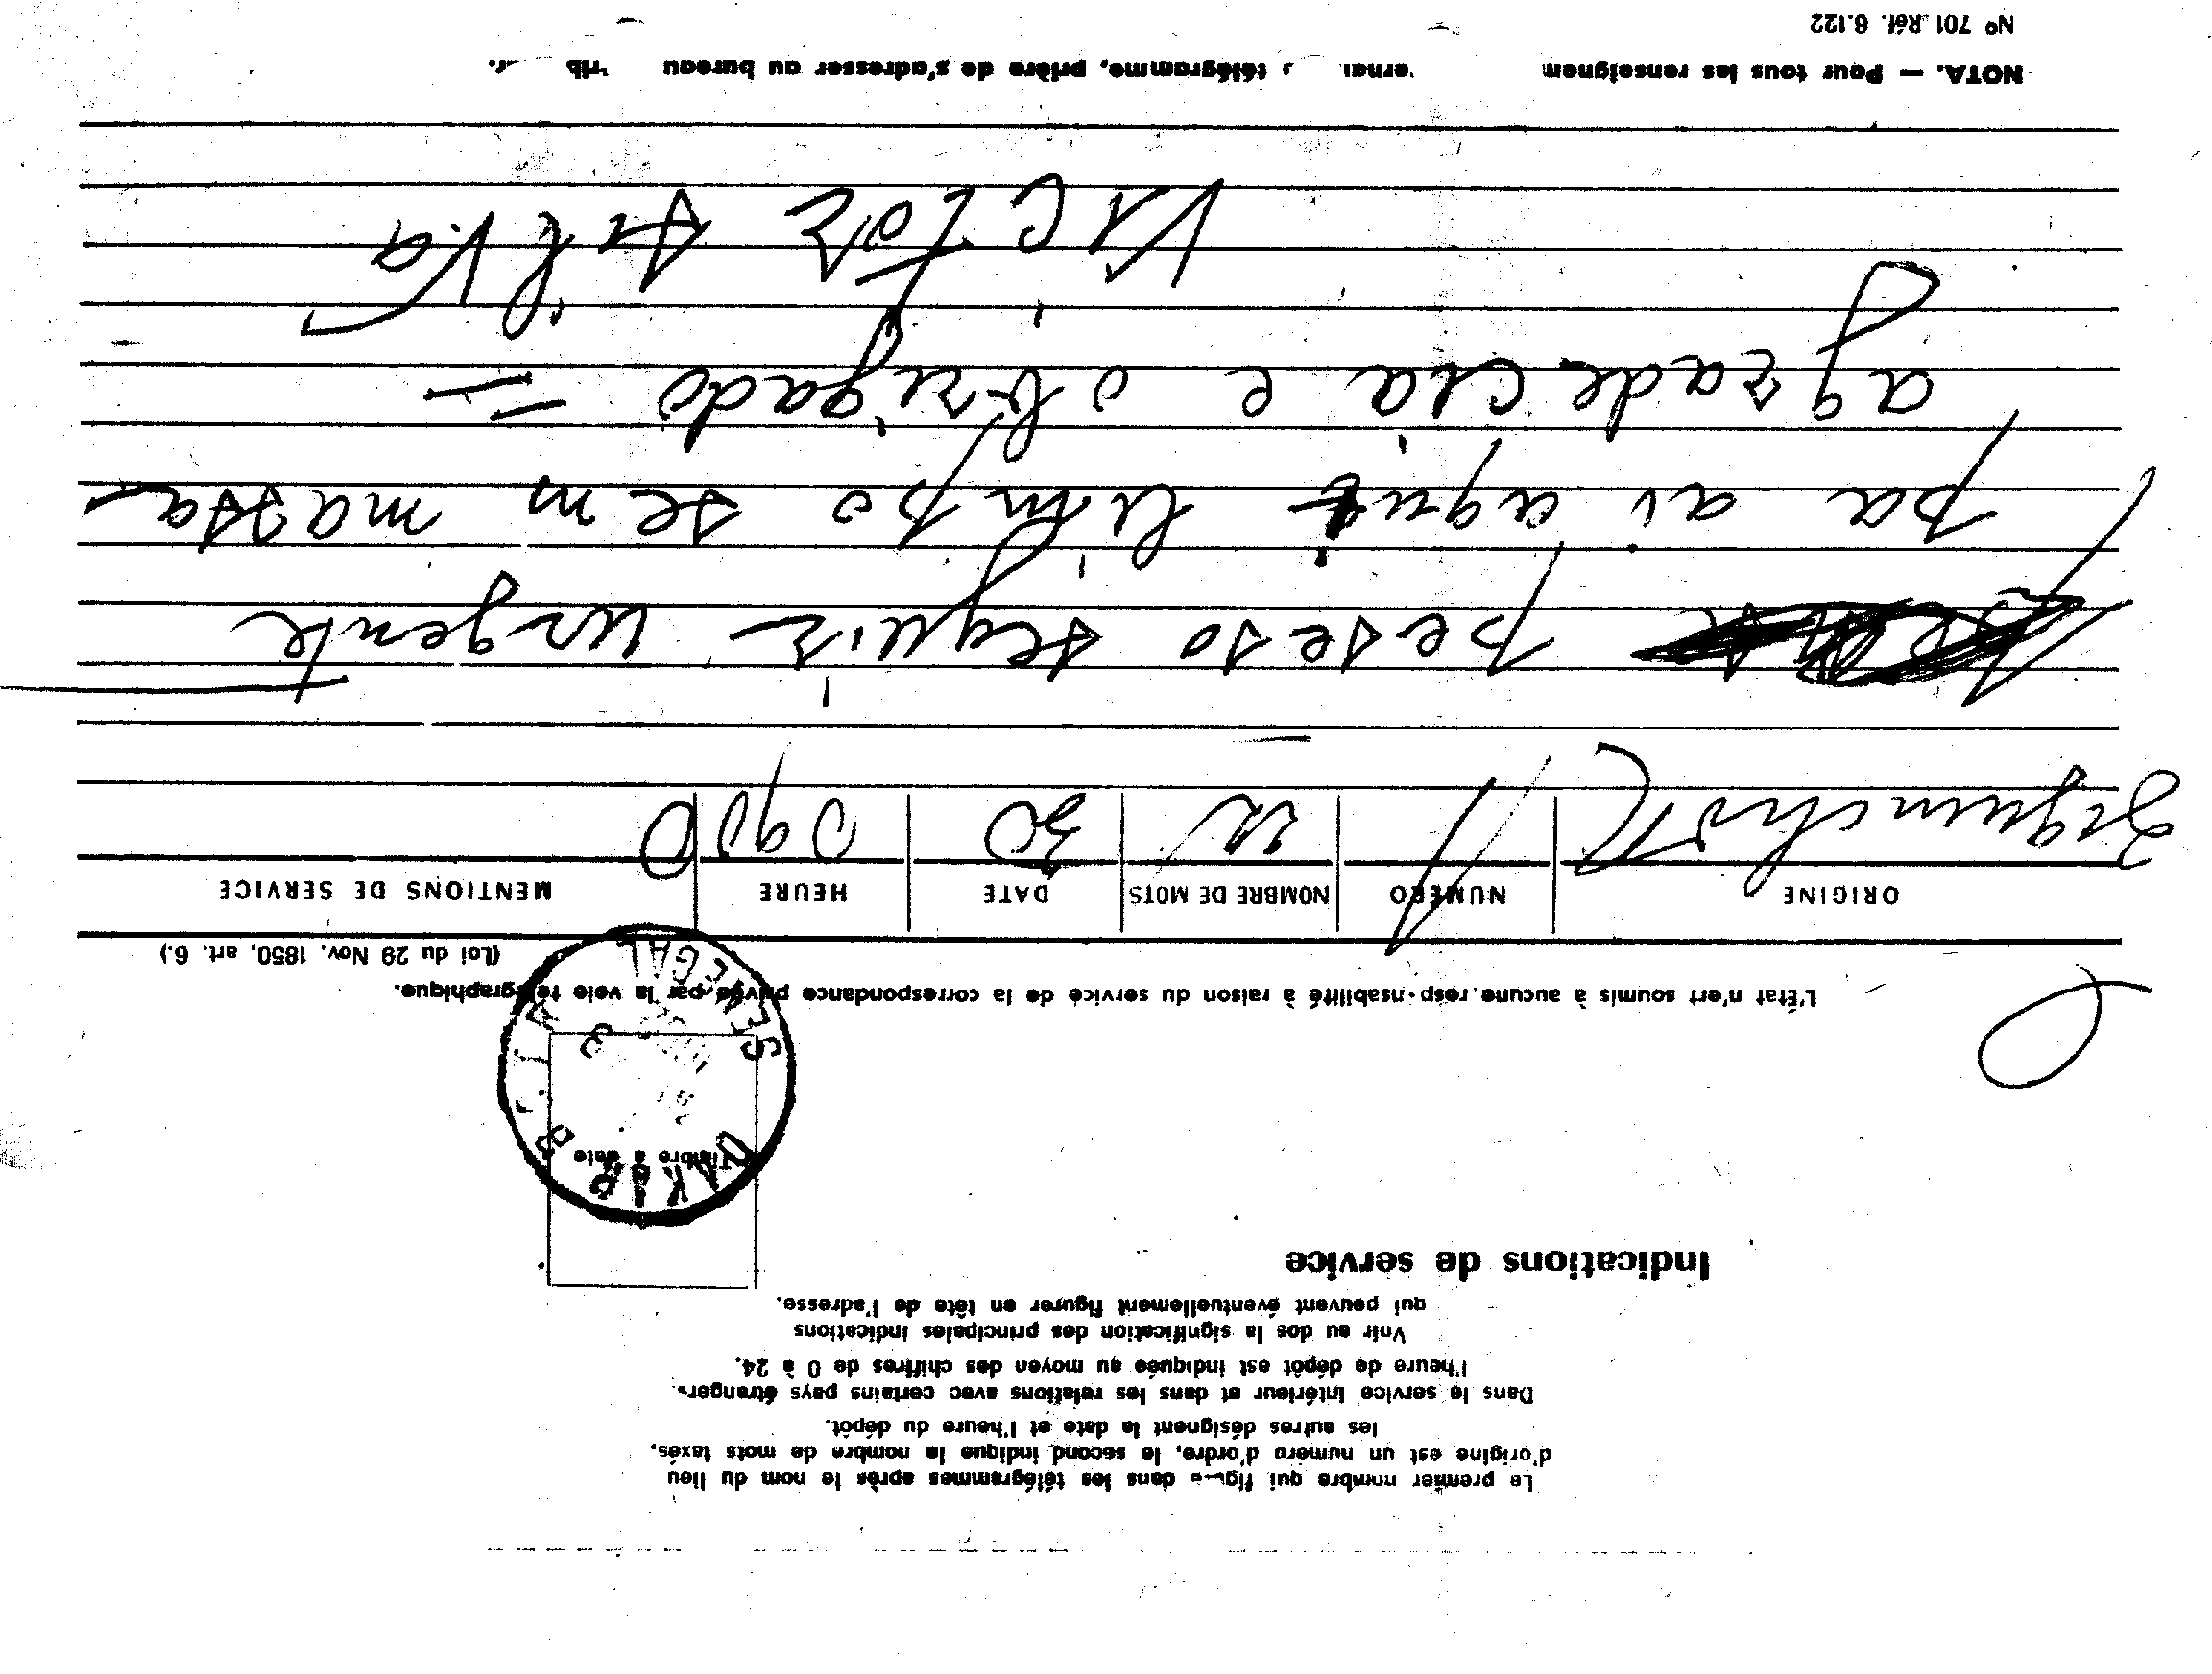 Le premier nombre qui figure dans les télégrammes après le nom du lieu
d'origine est un numéro d'ordre, le second indique le nombre de mots taxés,
les autres désignent la date et l'heure du dépôt.
Dans le service intérieur et dans les relations avec certains pays étrangers.
l'heure de dépôt est indiquée au moyen des chiffres de 0 à 24.
Voir au dos la signification des principales indications
qui peuvent éventuellement figurer en tête de l'adresse.
Indications de service
Timbre à date
DAKAR
SENEGAL
L'État n'ert soumis à aucune responsabilité à raison du service de la correspondance privée par la voie télégraphique.
(Loi du 29 Nov. 1850, art. 6.)
ORIGINE NUMÉRO NOMBRE DE MOTS DATE HEURE MENTIONS DE SERVICE
Ziguinchor 22 30 0900
peseso seguir urgente
pa ai aqui limpo sem massa
agradecia e obrigado =
Victor Silva
NOTA. — Pour tous les télégramme, prière de s'adresser au bureau
Nº 701 Réf. 6.122